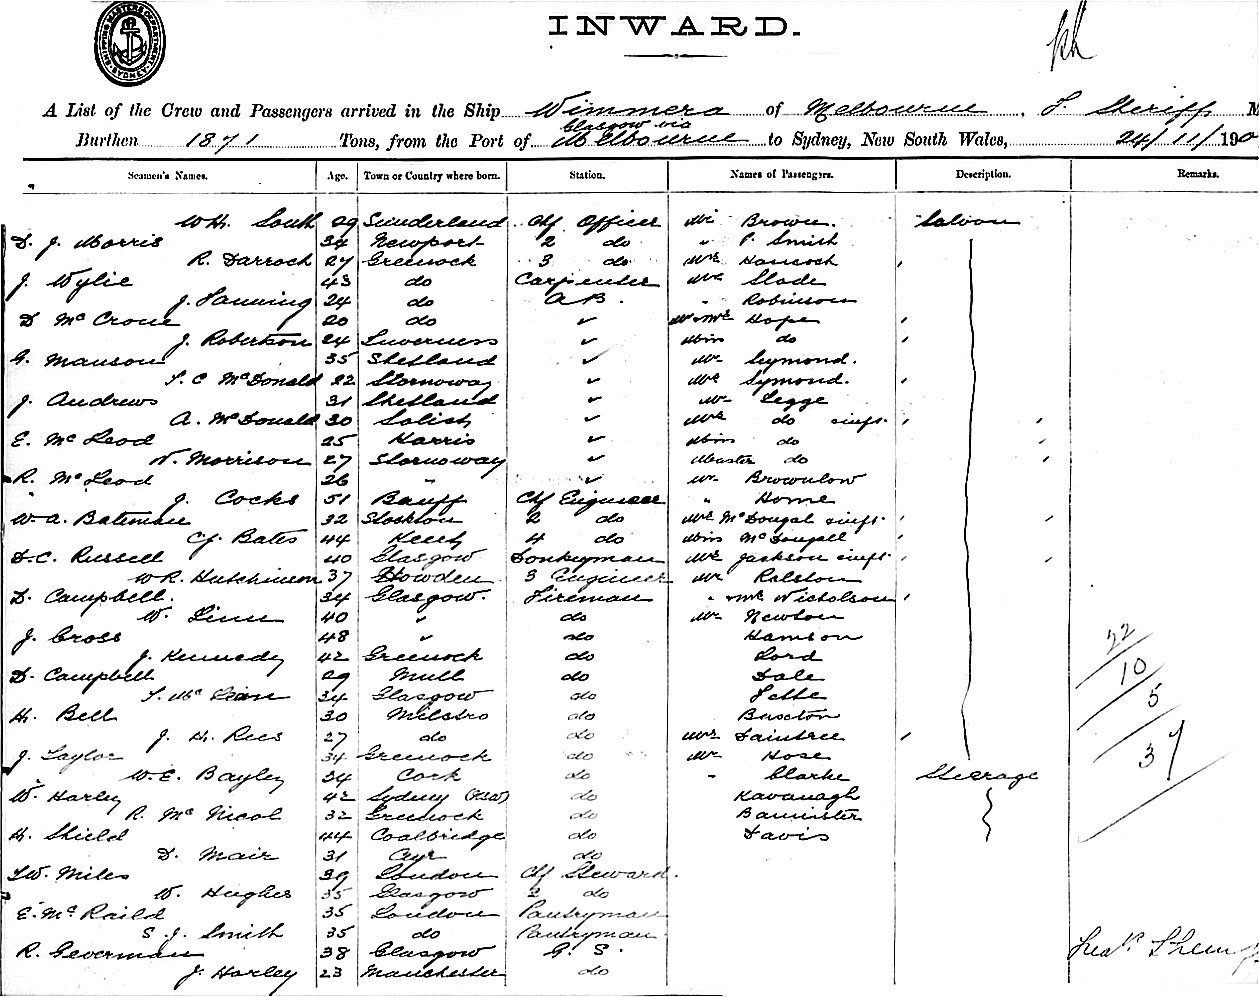 SHIPPING MASTERS DEPARTMENT SYDNEY
INWARD.
A List of the Crew and Passengers arrived in the Ship Wimmera of Melbourne. Sheriff M
Glasgow via
Burthen 1871 Tons, from the Port of Melbourne to Sydney, New South Wales, 24/11/190
Seamen's Names. Age. Town or Country where born. Station. Names of Passengers. Description. Remarks.
W.H. South 29 Sunderland Chf Officer Mr Brown. Saloon
D. J. Morris 34 Newport 2 do " P. Smith
R. Darroch 27 Greenock 3 do Mrs Hancock
J. Wylie 43 do Carpenter Mr Slade
J. Fanning 24 do A.B. " Robinson
D McCrone 20 do Mr & Mrs Hope
J. Robertson 24 Inverness Miss do
G. Manson 35 Shetland Mr Symond.
McDonald 22 Stornoway Mrs Symond.
J. Andrews 31 Shetland Mr Legge
A. McDonald 30 Mrs do inft.
E. McLeod 25 Harris Miss do
N. Morrison 27 Stornoway Master do
R. McLeod 26 " Mr Brownlow
J. Cocks 51 Banff Chf Engineer " Home
W.A. Bateman 32 Stockton 2 do Mrs McDougal inft.
Bates 44 4 do Miss McDougall
D.C. Russell 40 Glasgow Donkeyman Mrs Jackson inft.
W.R. Hutchinson 37 Howden 3 Engineer Mr Ralston
D. Campbell. 34 Glasgow. Fireman " & Mrs Nicholson
W. Linn 40 " do Mr Newton
J. Cross 48 " do
J. Kennedy 42 Greenock do Lord
D. Campbell 29 Mull do Dale
McLean 34 Glasgow do
H. Bell 30 do Buxton
J. H. Rees 27 do do Mrs Daintree
J. Taylor 34 Greenock do Mr Hose
W.E. Bayley 34 Cork do " Clarke Steerage
W. Harley 42 Sydney (NSW) do Kavanagh
R. McNicol 32 Greenock do Bannister
H. Shield 44 Coatbridge do Davis
D. Mair 31 Ayr do
Miles 39 London Chf Steward.
W. Hughes 35 Glasgow 2 do
E. McRaild 35 London Pantryman
S. J. Smith 35 do Pantryman
R. Geverman 38 Glasgow G. S.
J. Harley 23 Manchester do
22
10
5
37